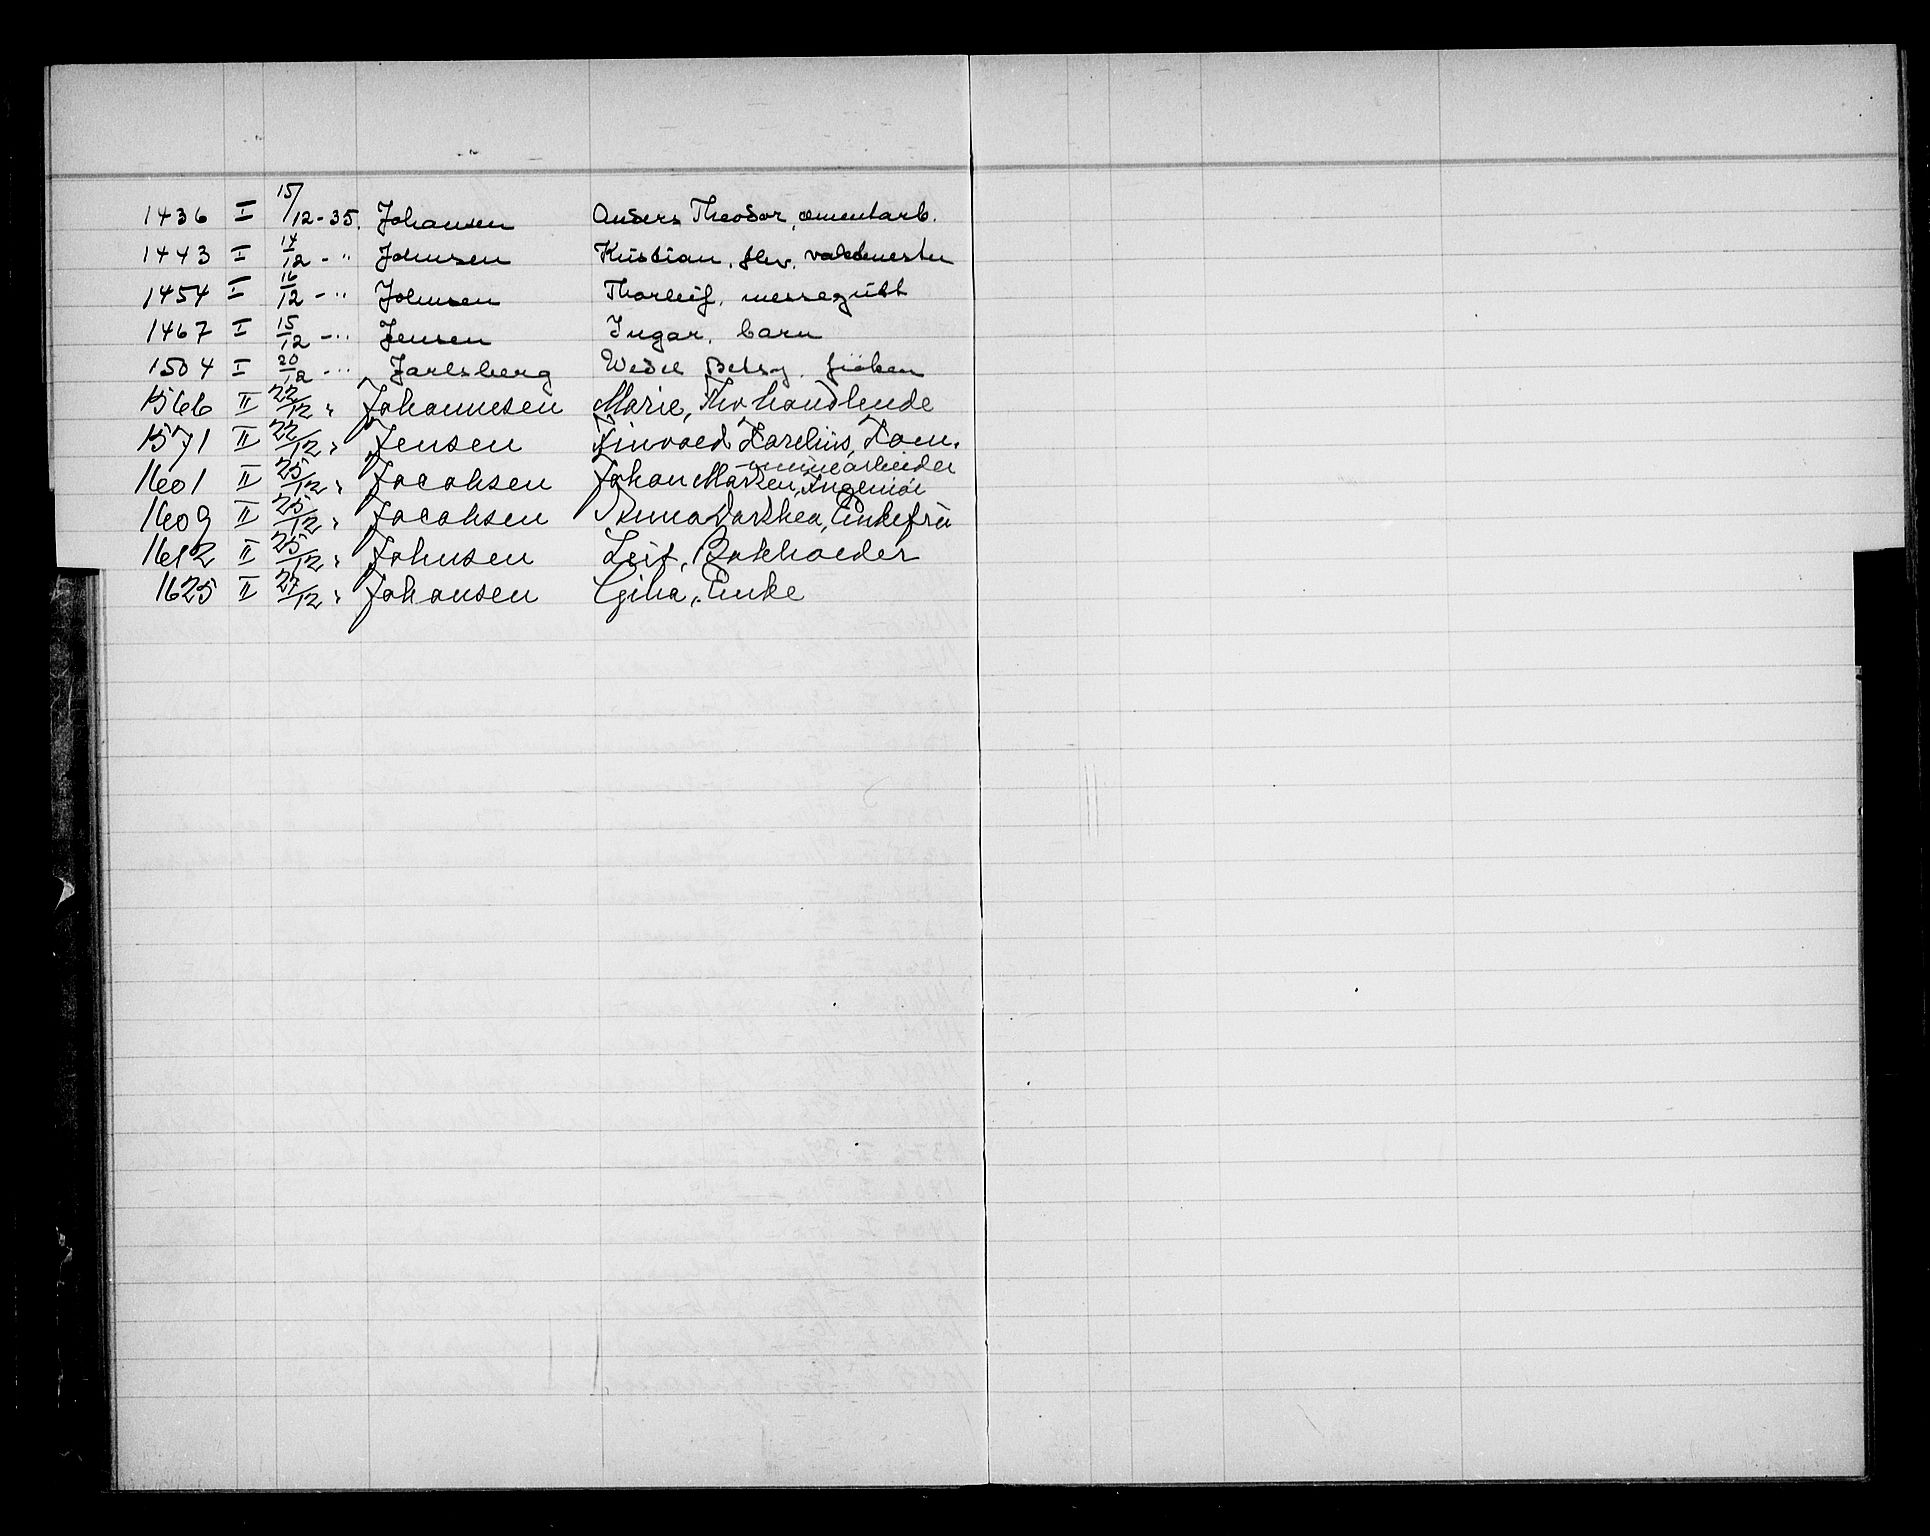 1436 I 15/12-35. Johansen Anders Theodor, cementarb.
1443 I 14/12 - " Johnsen Kristian, fhv. vaktmester
1454 I 16/12 - " Johnsen Thorleif, messegutt
1467 I 15/12 - " Jensen Ingar, barn
1504 I 20/12 - " Jarlsberg Wedel Betsy, frøken
1566 II 22/12 " Johannesen Marie, Fhv handlende
1571 II 22/12 " Jensen Finvald Karelius, Kom-
munearbeider
1601 II 25/12 " Jacobsen Johan Martin, Ingeniør
1609 II 25/12 " Jacobsen Anna Dorthea, Enkefru
1612 II 25/12 " Johnsen Leif, Bokholder
1625 II 27/12 " Johansen Enke